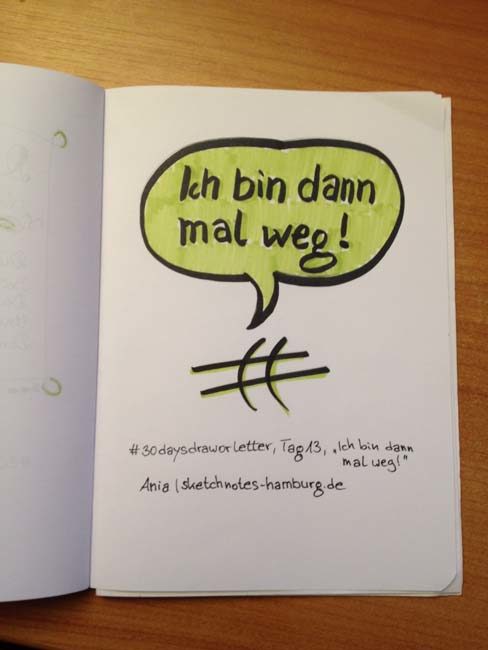 Ich bin dann
mal weg!
#30daysdraworletter, Tag 13, „Ich bin dann
mal weg!"
Ania | sketchnotes-hamburg.de